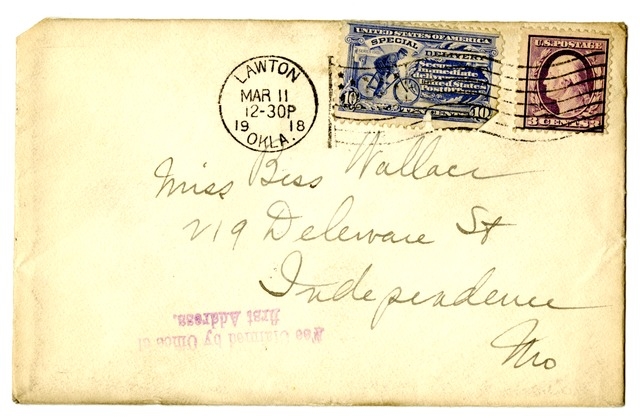 LAWTON
MAR 11
12-30P
1918
OKLA.
UNITED STATES OF AMERICA
SPECIAL DELIVERY
Secures
immediate
delivery
United States
Post
10 TEN CENTS 10
U.S. POSTAGE
3 CENTS 3
Miss Bess Wallace
219 Deleware St
Independence
Mo
Fee Claimed by Office of
first Address.